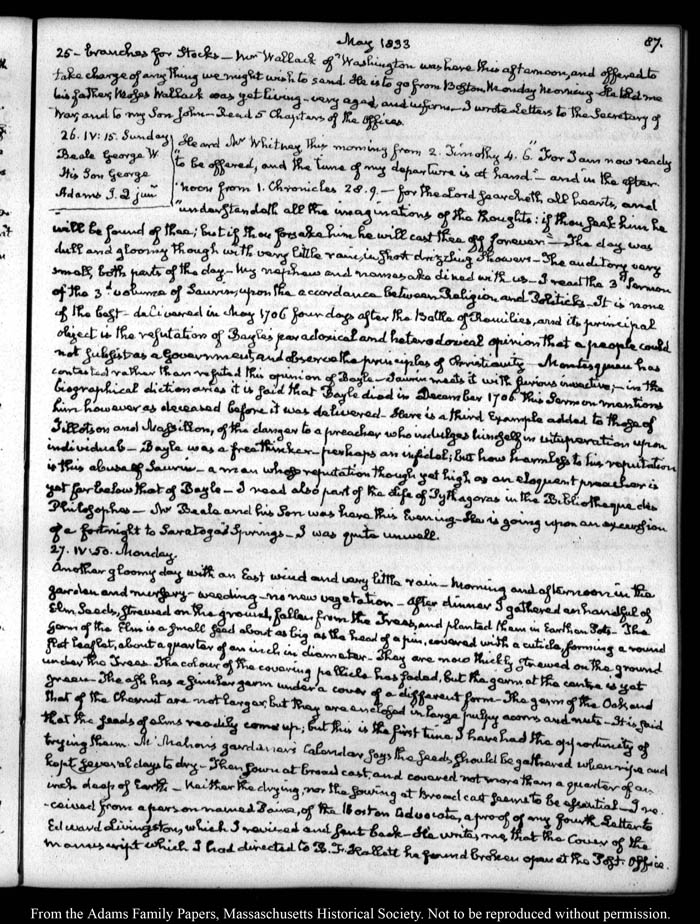 May 1833
87.
25 - branches for Stocks - Mr Wallack of Washington was here this afternoon, and offered to
take charge of any thing we might wish to send. He is to go from Boston, Monday Morning. He told me
his father, Moses Wallack was yet living - very aged, and infirm. I wrote Letters to the Secretary of
War, and to my Son John - Read 5 Chapters of the Offices.
26. IV: 15. Sunday
Beale George W
His Son George
Adams J. 2 junr
Heard Mr Whitney this morning from 2. Timothy 4. 6. "For I am now ready
"to be offered, and the time of my departure is at hand" - and in the after-
"noon from 1. Chronicles 28. 9. - for the Lord searcheth all hearts, and
"understandeth all the imaginations of the thoughts: if thou seek him he
will be found of thee; but if thou forsake him he will cast thee off forever" - The day was
dull and gloomy though with very little rain, in short drizzling showers - The auditory very
small, both parts of the day - My nephew and namesake dined with us - I read the 3d Sermon
of the 3d volume of Saurin, upon the accordance between Religion and Politicks - It is none
of the best - delivered in May 1706 four days after the Battle of Ramilies, and its principal
object is the refutation of Bayle's paradoxical and heterodoxical opinion that a people could
not subsist as a Government, and observe the principles of Christianity - Montesquieu has
contested rather than refuted this opinion of Bayle - Saurin meets it with furious invective; - in the
biographical dictionaries it is said that Bayle died in December 1706 This Sermon mentions
him however as deceased before it was delivered - Here is a third Example added to those of
Tillotson and Massillon, of the danger to a preacher who indulges himself in vituperation upon
individuals - Bayle was a freethinker - perhaps an infidel; but how harmless to his reputation
is this abuse of Saurin - a man whose reputation though yet high as an eloquent preacher is
yet far below that of Bayle - I read also part of the Life of Pythagoras in the Bibliotheque des
Philosophes - Mr Beale and his Son was here this Evening - He is going upon an excursion
of a fortnight to Saratoga Springs - I was quite unwell.
27. IV. 50. Monday.
Another gloomy day with an East wind and very little rain - Morning and afternoon in the
garden and nursery - weeding - no new vegetation - After dinner I gathered an handful of
Elm Seeds, strewed on the ground, fallen from the Trees, and planted them in Earthen Pots - The
germ of the Elm is a small seed about as big as the head of a pin, covered with a cuticle, forming a round
flat leaflet, about a quarter of an inch in diameter - They are now thickly strewed on the ground
under the Trees. The colour of the covering pellicle has faded, but the germ at the centre is yet
green - The ash has a similar germ under a cover of a different form - The germ of the Oak and
that of the Chesnut are not larger, but they are enclosed in large pulpy acorns and nuts - It is said
that the seeds of elms readily come up; but this is the first time, I have had the opportunity of
trying them. McMahon's gardener's Calendar says the seeds should be gathered when ripe and
kept several days to dry - Then sown at broad cast, and covered not more than a quarter of an
inch deep of Earth - Neither the drying, nor the sowing at Broad cast seems to be essential - I re-
-ceived from a person named Baine, of the Boston Advocate, a proof of my fourth Letter to
Edward Livingston, which I revised and sent back - He writes me that the Cover of the
manuscript which I had directed to B. F. Hallett he found broken open at the Post-Office.
From the Adams Family Papers, Massachusetts Historical Society. Not to be reproduced without permission.